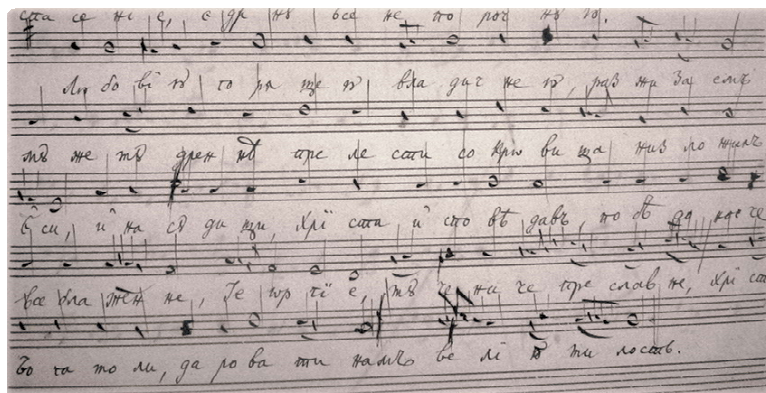 ста се нї е, е др нѣ все не по роч нѣ ю.
Лю бо вї ю го ря ще ю вла дыч не ю, раз жи за емь
тѣ же тѣ дрен нѣ пре ле сти со кро ви ща низ ло жилъ
Є си, и на сл ди ши, Хрї ста и спо вѣ давъ, по бѣ до нос че
все бла жен не, Ге ор гї е, мѣ че ни че пре слав не, Хрї ста
Бо га мо ли, да ро ва ти намъ ве лї ю ми лость.